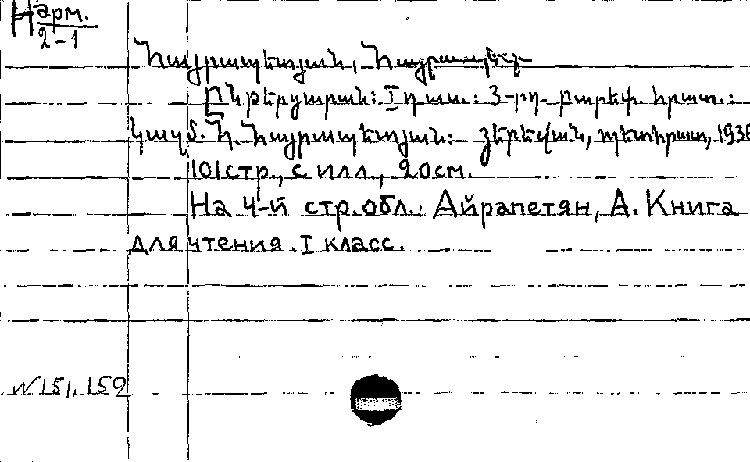 Нарм.
2-1
Հայրապետյան, Հայրապետ
Ընթերցարան: I դաս.: 3-րդ բարեփ. հրատ.:
Կազմ. Հ. Հայրապետյան: Յերեվան, պետհրատ, 193
101 стр., с илл., 20 см.
На 4-й стр. обл.: Айрапетян, А. Книга
для чтения. I класс.
N 151, 152